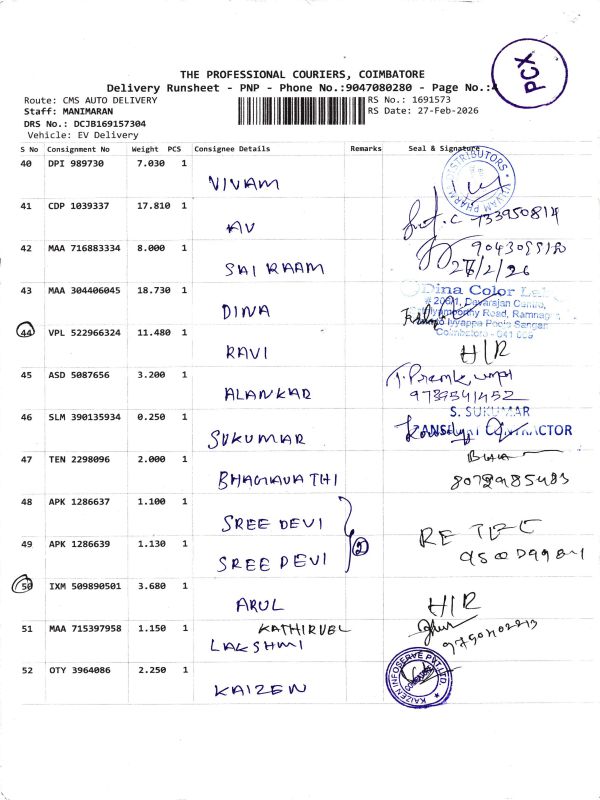 PCX
THE PROFESSIONAL COURIERS, COIMBATORE
Delivery Runsheet - PNP - Phone No.:9047080280 - Page No.:4
Route: CMS AUTO DELIVERY RS No.: 1691573
Staff: MANIMARAN RS Date: 27-Feb-2026
DRS No.: DCJB169157304
Vehicle: EV Delivery
S No Consignment No Weight PCS Consignee Details Remarks Seal & Signature
40 DPI 989730 7.030 1 VIVAM
41 CDP 1039337 17.810 1 AV
42 MAA 716883334 8.000 1 SAI RAAM
27/2/26
43 MAA 304406045 18.730 1 DINA
Dina Color Lab
44 VPL 522966324 11.480 1 RAVI H/R
45 ASD 5087656 3.200 1 ALANKAR
46 SLM 390135934 0.250 1 SUKUMAR
S. SUKUMAR
47 TEN 2298096 2.000 1 BHAGAVATHI
48 APK 1286637 1.100 1 SREE DEVI
49 APK 1286639 1.130 1 SREE DEVI
2
50 IXM 509890501 3.680 1 ARUL H/R
51 MAA 715397958 1.150 1 KATHIRVEL
LAKSHMI
52 OTY 3964086 2.250 1 KAIZEN
KAIZEN INFOSERVE PVT LTD.